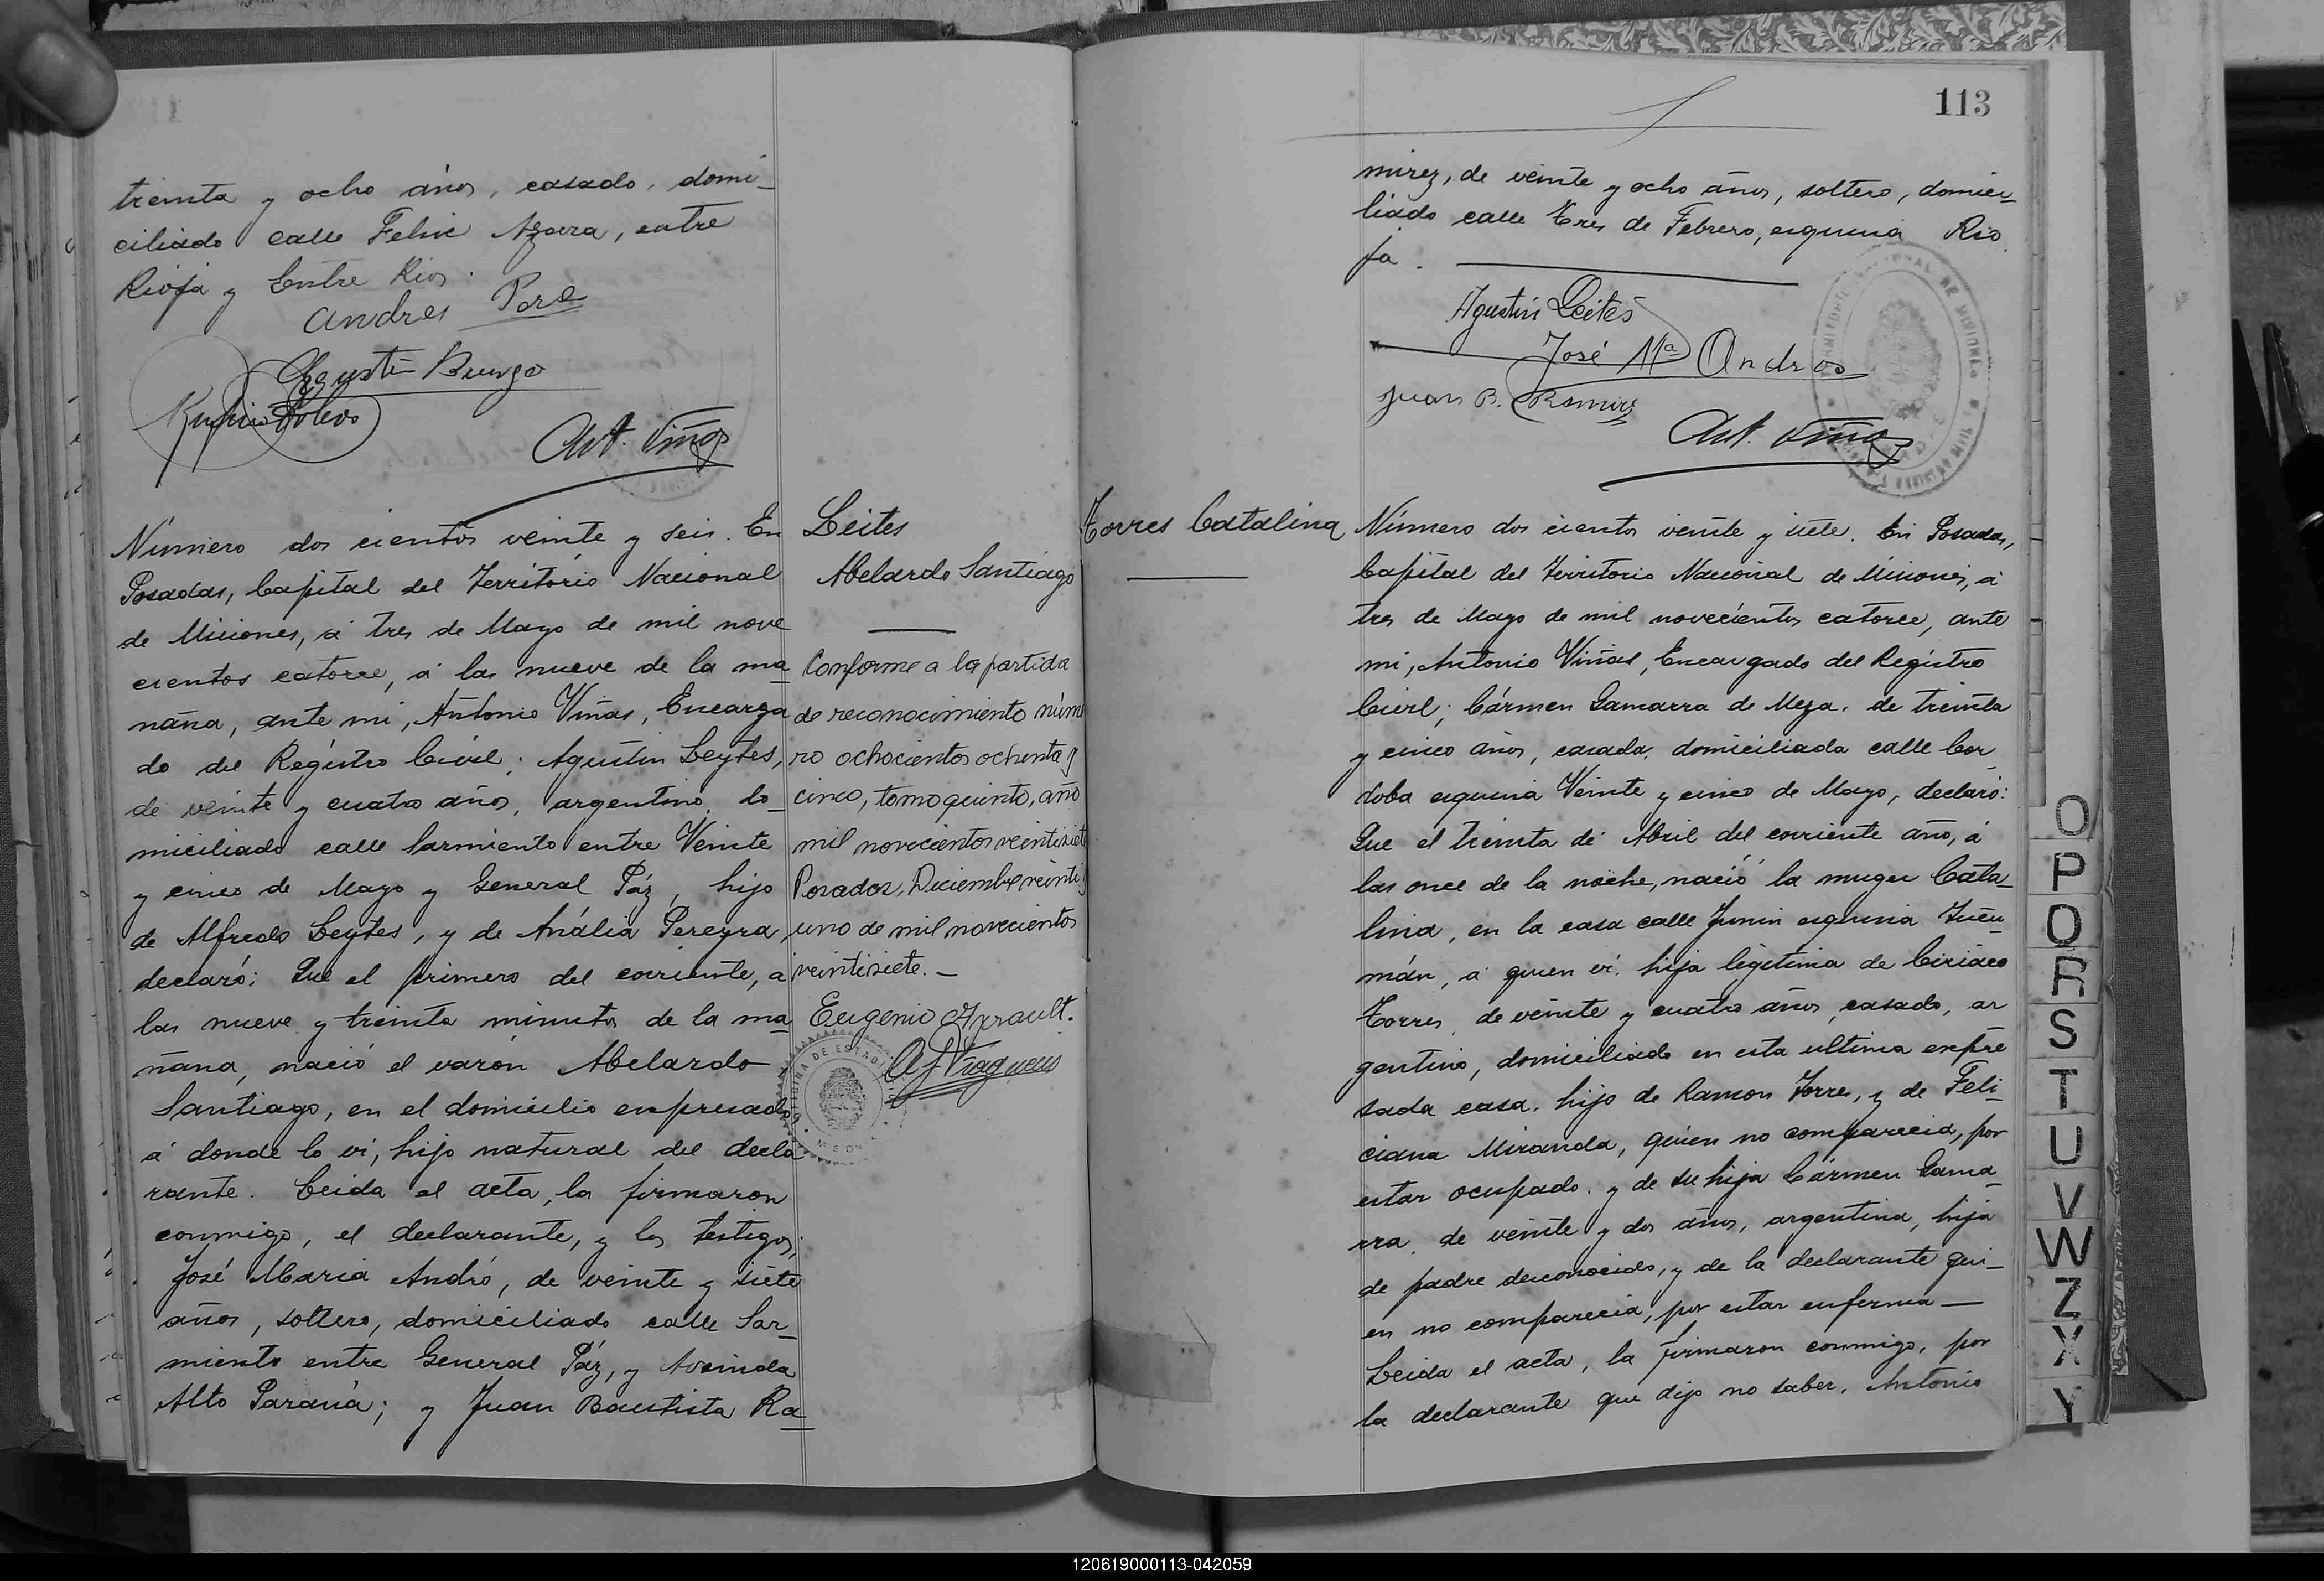 treinta y ocho años, casado, domi_
ciliado calle Felix Azara, entre
Rioja y Entre Rios.
Andres Pere
Agustin Burgo
Toledo
Ant. Viñas
Número dos cientos veinte y seis. En
Posadas, Capital del Territorio Nacional
de Misiones, á tres de Mayo de mil nove
cientos catorce, á las nueve de la ma_
ñana, ante mi, Antonio Viñas, Encarga
do del Registro Civil; Agustin Leytes,
de veinte y cuatro años, argentino, do_
miciliado calle Sarmiento entre Veinte
y cinco de Mayo y General Páz, hijo
de Alfredo Leytes, y de Anália Pereyra,
declaró; Que el primero del corriente, a
las nueve y treinta minutos de la ma_
ñana, nació el varón Abelardo
Santiago, en el domicilio expresado,
á donde lo vi, hijo natural del decla
rante. Leida el acta, la firmaron
conmigo, el declarante, y los testigos,
José Maria Andró, de veinte y siete
años, soltero, domiciliado calle Sar_
miento entre General Páz, y Avenida
Alto Paraná; y Juan Bautista Ra_
Leites
Abelardo Santiago
Conforme a la partida
de reconocimiento núme
ro ochocientos ochenta y
cinco, tomo quinto, año
mil novecientos veintisiete
Posadas, Diciembre veinti
uno de mil novecientos
veintisiete._
Eugenio
OFICINA DE ESTADI
113
mirez, de veinte y ocho años, soltero, domici_
liado calle Tres de Febrero, esquina Rio
ja.
Agustín Leites
José Ma Andros
Juan B. Ramirez
Ant. Viñas
NAL DE MISIONES
Torres Catalina
Número dos cientos veinte y siete. En Posadas,
Capital del Territorio Nacional de Misiones, á
tres de Mayo de mil novecientos catorce, ante
mi, Antonio Viñas, Encargado del Registro
Civil; Cármen Gamarra de Meza, de treinta
y cinco años, casada, domiciliada calle Cor_
doba esquina Veinte y cinco de Mayo, declaró:
Que el treinta de Abril del corriente año, á
las once de la noche, nació la muger Cata_
lina, en la casa calle Junin esquina Tucu_
mán, a quien vi, hija legitima de Ciriaco
Torres, de veinte y cuatro años, casado, ar
gentino, domiciliado en esta ultima expre
sada casa, hijo de Ramon Torres, y de Feli_
ciana Miranda, quien no comparecia, por
estar ocupado, y de su hija Cármen Gama_
rra, de veinte y dos años, argentina, hija
de padre desconocido, y de la declarante qui_
en no comparecia, por estar enferma_
Leida el acta, la firmaron conmigo, por
la declarante que dijo no saber, Antonio
O
P
Q
R
S
T
U
V
W
Z
X
Y
120619000113-042059